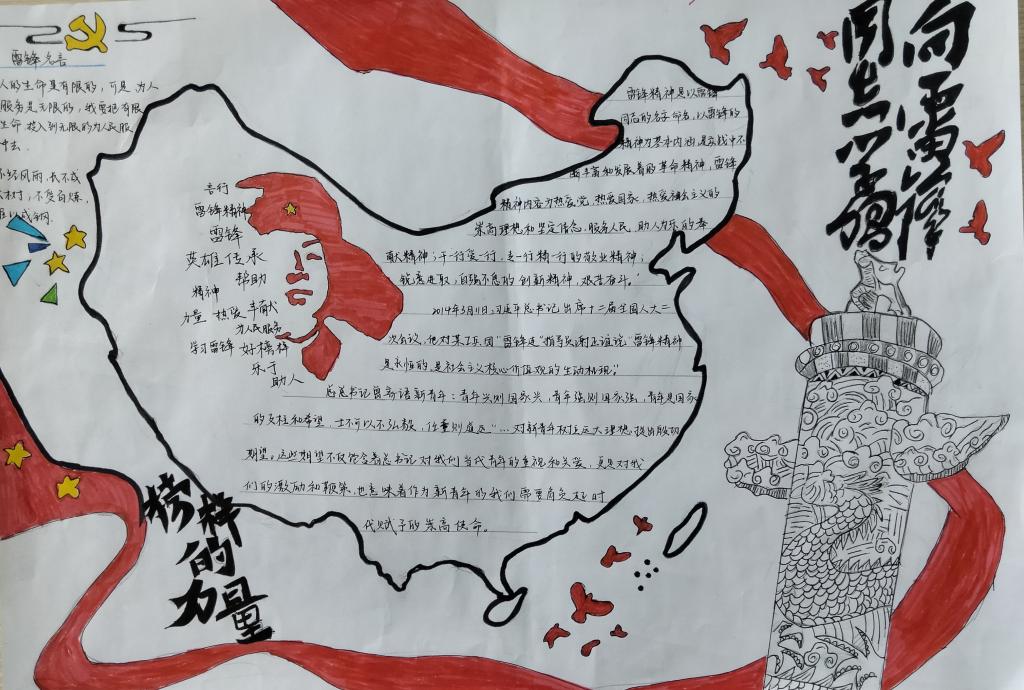 雷锋名言
人的生命是有限的，可是为人
服务是无限的，我要把有限
生命投入到无限的为人民服
中去.
不经风雨，长不成
大树；不受百炼，
难以成钢.
向雷锋
同志学习
言行
雷锋精神
雷锋
英雄 传承
帮助
精神
力量 热爱 奉献
为人民服务
学习雷锋 好榜样
乐于
助人
雷锋精神是以雷锋
同志的名字命名，以雷锋的
精神为基本内涵，在实践中不
断丰富和发展着的革命精神，雷锋
精神内容为热爱党，热爱国家，热爱社会主义的
崇高理想和坚定信念，服务人民，助人为乐的奉
献精神；干一行爱一行，走一行精一行的敬业精神；
锐意进取，自强不息的创新精神，艰苦奋斗.
2014年3月11日，习近平总书记出席十二届全国人大二
次会议，他对某工兵团“雷锋连”指导员谢正谊说“雷锋精神
是永恒的，是社会主义核心价值观的生动体现”
总书记曾寄语新青年：青年兴则国家兴，青年强则国家强，青年是国家
的支柱和希望，士不可以不弘毅，任重则道远“…对新青年树立远大理想提出殷切
期望。这些期望不仅饱含着总书记对我们当代青年的重视和关爱、更是对我
们的激励和鞭策，也意味着作为新青年的我们需要肩负起时
代赋予的崇高使命。
榜样
的
力量